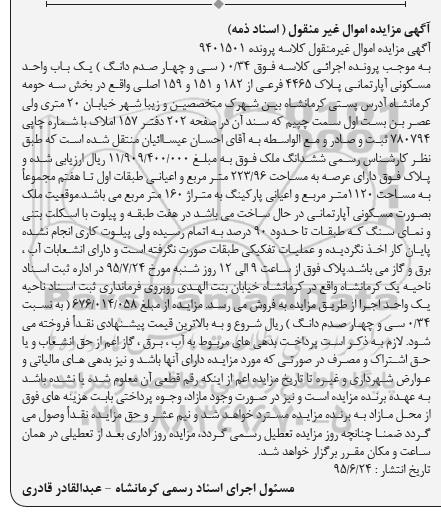 آگهی مزایده اموال غیر منقول ( اسناد ذمه)
آگهی مزایده اموال غیرمنقول کلاسه پرونده ۹۴۰۱۵۰۱
به موجب پرونده اجرائی کلاسه فوق ۰/۳۴ ( سی و چهار صدم دانگ ) یک باب واحد
مسکونی آپارتمانی پلاک ۴۴۶۵ فرعی از ۱۸۲ و ۱۵۱ و ۱۵۹ اصلی واقع در بخش سه حومه
کرمانشاه آدرس پستی کرمانشاه بین شهرک متخصصین و زیبا شهر خیابان ۲۰ متری ولی
عصر بن بست اول سمت چپم که سند آن در صفحه ۲۰۲ دفتر ۱۵۷ املاک با شماره چاپی
۷۸۰۷۹۴ ثبت و صادر و مع الواسطه به آقای احسان عیسائیان منتقل شده است که طبق
نظر کارشناس رسمی ششدانگ ملک فوق به مبلغ ۱۱/۹۰۹/۴۰۰/۰۰۰ ریال ارزیابی شده و
پلاک فوق دارای عرصه به مساحت ۲۲۳/۹۶ متر مربع و اعیانی طبقات اول تا هفتم مجموعاً
به مساحت ۱۱۲۰متر مربع و اعیانی پارکینگ به متراژ ۱۶۰ متر مربع می باشد.موقعیت ملک
بصورت مسکونی آپارتمانی در حال ساخت می باشد در هفت طبقه و پیلوت با اسکلت بتنی
و نمای سنگ که طبقات تا حدود ۹۰ درصد به اتمام رسیده ولی پیلوت کاری انجام نشده
پایان کار اخذ نگردیده و عملیات تفکیکی طبقات صورت نگرفته است و دارای انشعابات آب ،
برق و گاز می باشد.پلاک فوق از ساعت ۹ الی ۱۲ روز شنبه مورخ ۹۵/۷/۲۴ در اداره ثبت اسناد
ناحیه یک کرمانشاه واقع در کرمانشاه خیابان بنت الهدی روبروی فرمانداری ثبت اسناد ناحیه
یک واحد اجرا از طریق مزایده به فروش می رسد. مزایده از مبلغ ۶۷۶/۰۱۴/۰۵۸ ( به نسبت
۰/۳۴ سی و چهار صدم دانگ ) ریال شروع و به بالاترین قیمت پیشنهادی نقداً فروخته می
شود. لازم به ذکر است پرداخت بدهی های مربوط به آب ، برق ، گاز اعم از حق انشعاب و یا
حق اشتراک و مصرف در صورتی که مورد مزایده دارای آنها باشد و نیز بدهی های مالیاتی و
عوارض شهرداری و غیره تا تاریخ مزایده اعم از اینکه رقم قطعی آن معلوم شده یا نشده باشد
به عهده برنده مزایده است و نیز در صورت وجود مازاد، وجوه پرداختی بابت هزینه های فوق
از محل مازاد به برنده مزایده مسترد خواهد شد و نیم عشر و حق مزایده نقداً وصول می
گردد ضمنا چنانچه روز مزایده تعطیل رسمی گردد، مزایده روز اداری بعد از تعطیلی در همان
ساعت و مکان مقرر برگزار خواهد شد.
تاریخ انتشار : ۹۵/۶/۲۴
مسئول اجرای اسناد رسمی کرمانشاه - عبدالقادر قادری